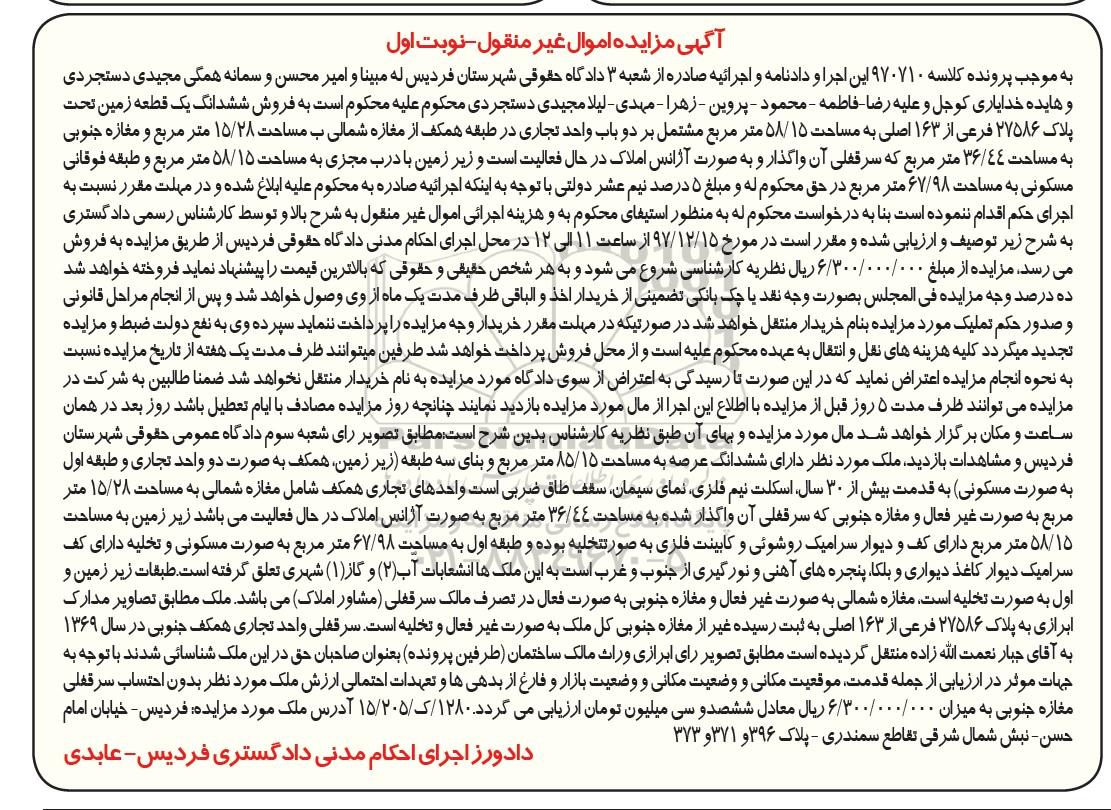 آگهی مزایده اموال غیر منقول-نوبت اول
به موجب پرونده کلاسه ۹۷۰۷۱۰ این اجرا و دادنامه و اجرائیه صادره از شعبه ۳ دادگاه حقوقی شهرستان فردیس له مبینا و امیر محسن و سمانه همگی مجیدی دستجردی
و هایده خدایاری کوجل و علیه رضا-فاطمه -محمود - پروین - زهرا - مهدی- لیلا مجیدی دستجردی محکوم علیه محکوم است به فروش ششدانگ یک قطعه زمین تحت
پلاک ۲۷۵۸۶ فرعی از ۱۶۳ اصلی به مساحت ۵۸/۱۵ متر مربع مشتمل بر دو باب واحد تجاری در طبقه همکف از مغازه شمالی ب مساحت ۱۵/۲۸ متر مربع و مغازه جنوبی
به مساحت ۳۶/۴۴ متر مربع که سرقفلی آن واگذار و به صورت آژانس املاک در حال فعالیت است و زیر زمین با درب مجزی به مساحت ۵۸/۱۵ متر مربع و طبقه فوقانی
مسکونی به مساحت ۶۷/۹۸ متر مربع در حق محکوم له و مبلغ ۵ درصد نیم عشر دولتی با توجه به اینکه اجرائیه صادره به محکوم علیه ابلاغ شده و در مهلت مقرر نسبت به
اجرای حکم اقدام ننموده است بنا به درخواست محکوم له به منظور استیفای محکوم به و هزینه اجرائی اموال غیر منقول به شرح بالا و توسط کارشناس رسمی دادگستری
به شرح زیر توصیف و ارزیابی شده و مقرر است در مورخ ۹۷/۱۲/۱۵ از ساعت ۱۱ الی ۱۲ در محل اجرای احکام مدنی دادگاه حقوقی فردیس از طریق مزایده به فروش
می رسد، مزایده از مبلغ ۶/۳۰۰/۰۰۰/۰۰۰ ریال نظریه کارشناسی شروع می شود و به هر شخص حقیقی و حقوقی که بالاترین قیمت را پیشنهاد نماید فروخته خواهد شد
ده درصد وجه مزایده فی المجلس بصورت وجه نقد یا چک بانکی تضمینی از خریدار اخذ و الباقی ظرف مدت یک ماه از وی وصول خواهد شد و پس از انجام مراحل قانونی
و صدور حکم تملیک مورد مزایده بنام خریدار منتقل خواهد شد در صورتیکه در مهلت مقرر خریدار وجه مزایده را پرداخت ننماید سپرده وی به نفع دولت ضبط و مزایده
تجدید میگردد کلیه هزینه های نقل و انتقال به عهده محکوم علیه است و از محل فروش پرداخت خواهد شد طرفین میتوانند ظرف مدت یک هفته از تاریخ مزایده نسبت
به نحوه انجام مزایده اعتراض نماید که در این صورت تا رسیدگی به اعتراض از سوی دادگاه مورد مزایده به نام خریدار منتقل نخواهد شد ضمنا طالبین به شرکت در
مزایده می توانند ظرف مدت ۵ روز قبل از مزایده با اطلاع این اجرا از مال مورد مزایده بازدید نمایند چنانچه روز مزایده مصادف با ایام تعطیل باشد روز بعد در همان
ساعت و مکان برگزار خواهد شد مال مورد مزایده و بهای آن طبق نظریه کارشناس بدین شرح است:مطابق تصویر رای شعبه سوم دادگاه عمومی حقوقی شهرستان
فردیس و مشاهدات بازدید، ملک مورد نظر دارای ششدانگ عرصه به مساحت ۸۵/۱۵ متر مربع و بنای سه طبقه (زیر زمین، همکف به صورت دو واحد تجاری و طبقه اول
به صورت مسکونی) به قدمت بیش از ۳۰ سال، اسکلت نیم فلزی، نمای سیمان، سقف طاق ضربی است واحدهای تجاری همکف شامل مغازه شمالی به مساحت ۱۵/۲۸ متر
مربع به صورت غیر فعال و مغازه جنوبی که سرقفلی آن واگذار شده به مساحت ۳۶/۴۴ متر مربع به صورت آژانس املاک در حال فعالیت می باشد زیر زمین به مساحت
۵۸/۱۵ متر مربع دارای کف و دیوار سرامیک روشوئی و کابینت فلزی به صورتتخلیه بوده و طبقه اول به مساحت ۶۷/۹۸ متر مربع به صورت مسکونی و تخلیه دارای کف
سرامیک دیوار کاغذ دیواری و بلکا، پنجره های آهنی و نورگیری از جنوب و غرب است به این ملک ها انشعابات آب(۲) و گاز(۱) شهری تعلق گرفته است.طبقات زیر زمین و
اول به صورت تخلیه است، مغازه شمالی به صورت غیر فعال و مغازه جنوبی به صورت فعال در تصرف مالک سرقفلی (مشاور املاک) می باشد. ملک مطابق تصاویر مدارک
ابرازی به پلاک ۲۷۵۸۶ فرعی از ۱۶۳ اصلی به ثبت رسیده غیر از مغازه جنوبی کل ملک به صورت غیر فعال و تخلیه است. سرقفلی واحد تجاری همکف جنوبی در سال ۱۳۶۹
به آقای جبار نعمت الله زاده منتقل گردیده است مطابق تصویر رای ابرازی وراث مالک ساختمان (طرفین پرونده) بعنوان صاحبان حق در این ملک شناسائی شدند با توجه به
جهات موثر در ارزیابی از جمله قدمت، موقعیت مکانی و وضعیت مکانی و وضعیت بازار و فارغ از بدهی ها و تعهدات احتمالی ارزش ملک مورد نظر بدون احتساب سرقفلی
مغازه جنوبی به میزان ۶/۳۰۰/۰۰۰/۰۰۰ ریال معادل ششصدو سی میلیون تومان ارزیابی می گردد.۱۲۸۰/ک/۱۵/۲۰۵ آدرس ملک مورد مزایده: فردیس- خیابان امام
حسن- نبش شمال شرقی تقاطع سمندری - پلاک ۳۹۶و ۳۷۱و ۳۷۳
دادورز اجرای احکام مدنی دادگستری فردیس- عابدی
ParsNamadData